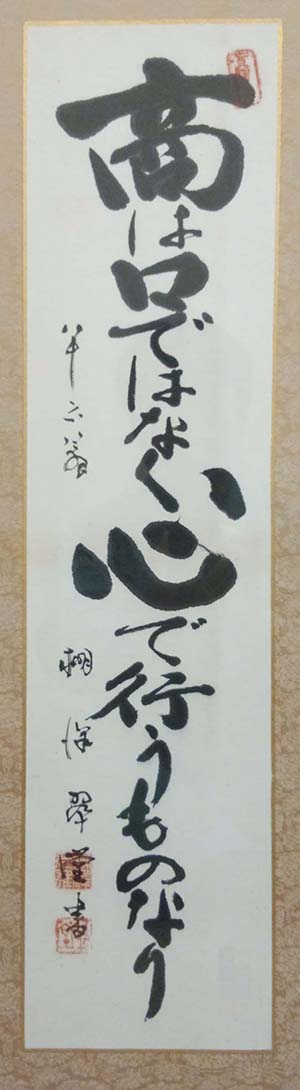 商は口ではなく心で行うものなり
八十六翁
翠堂書